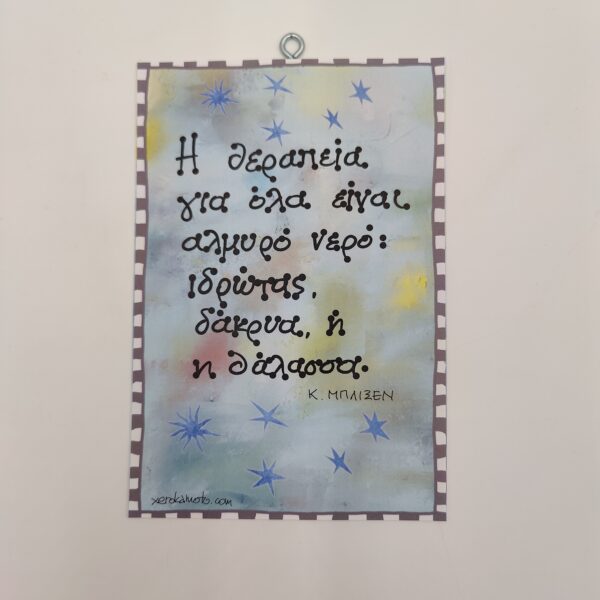 Η θεραπεία
για όλα είναι
αλμυρό νερό:
ιδρώτας,
δάκρυα, ή
η θάλασσα.
Κ. ΜΠΛΙΞΕΝ
xerokamoto.com